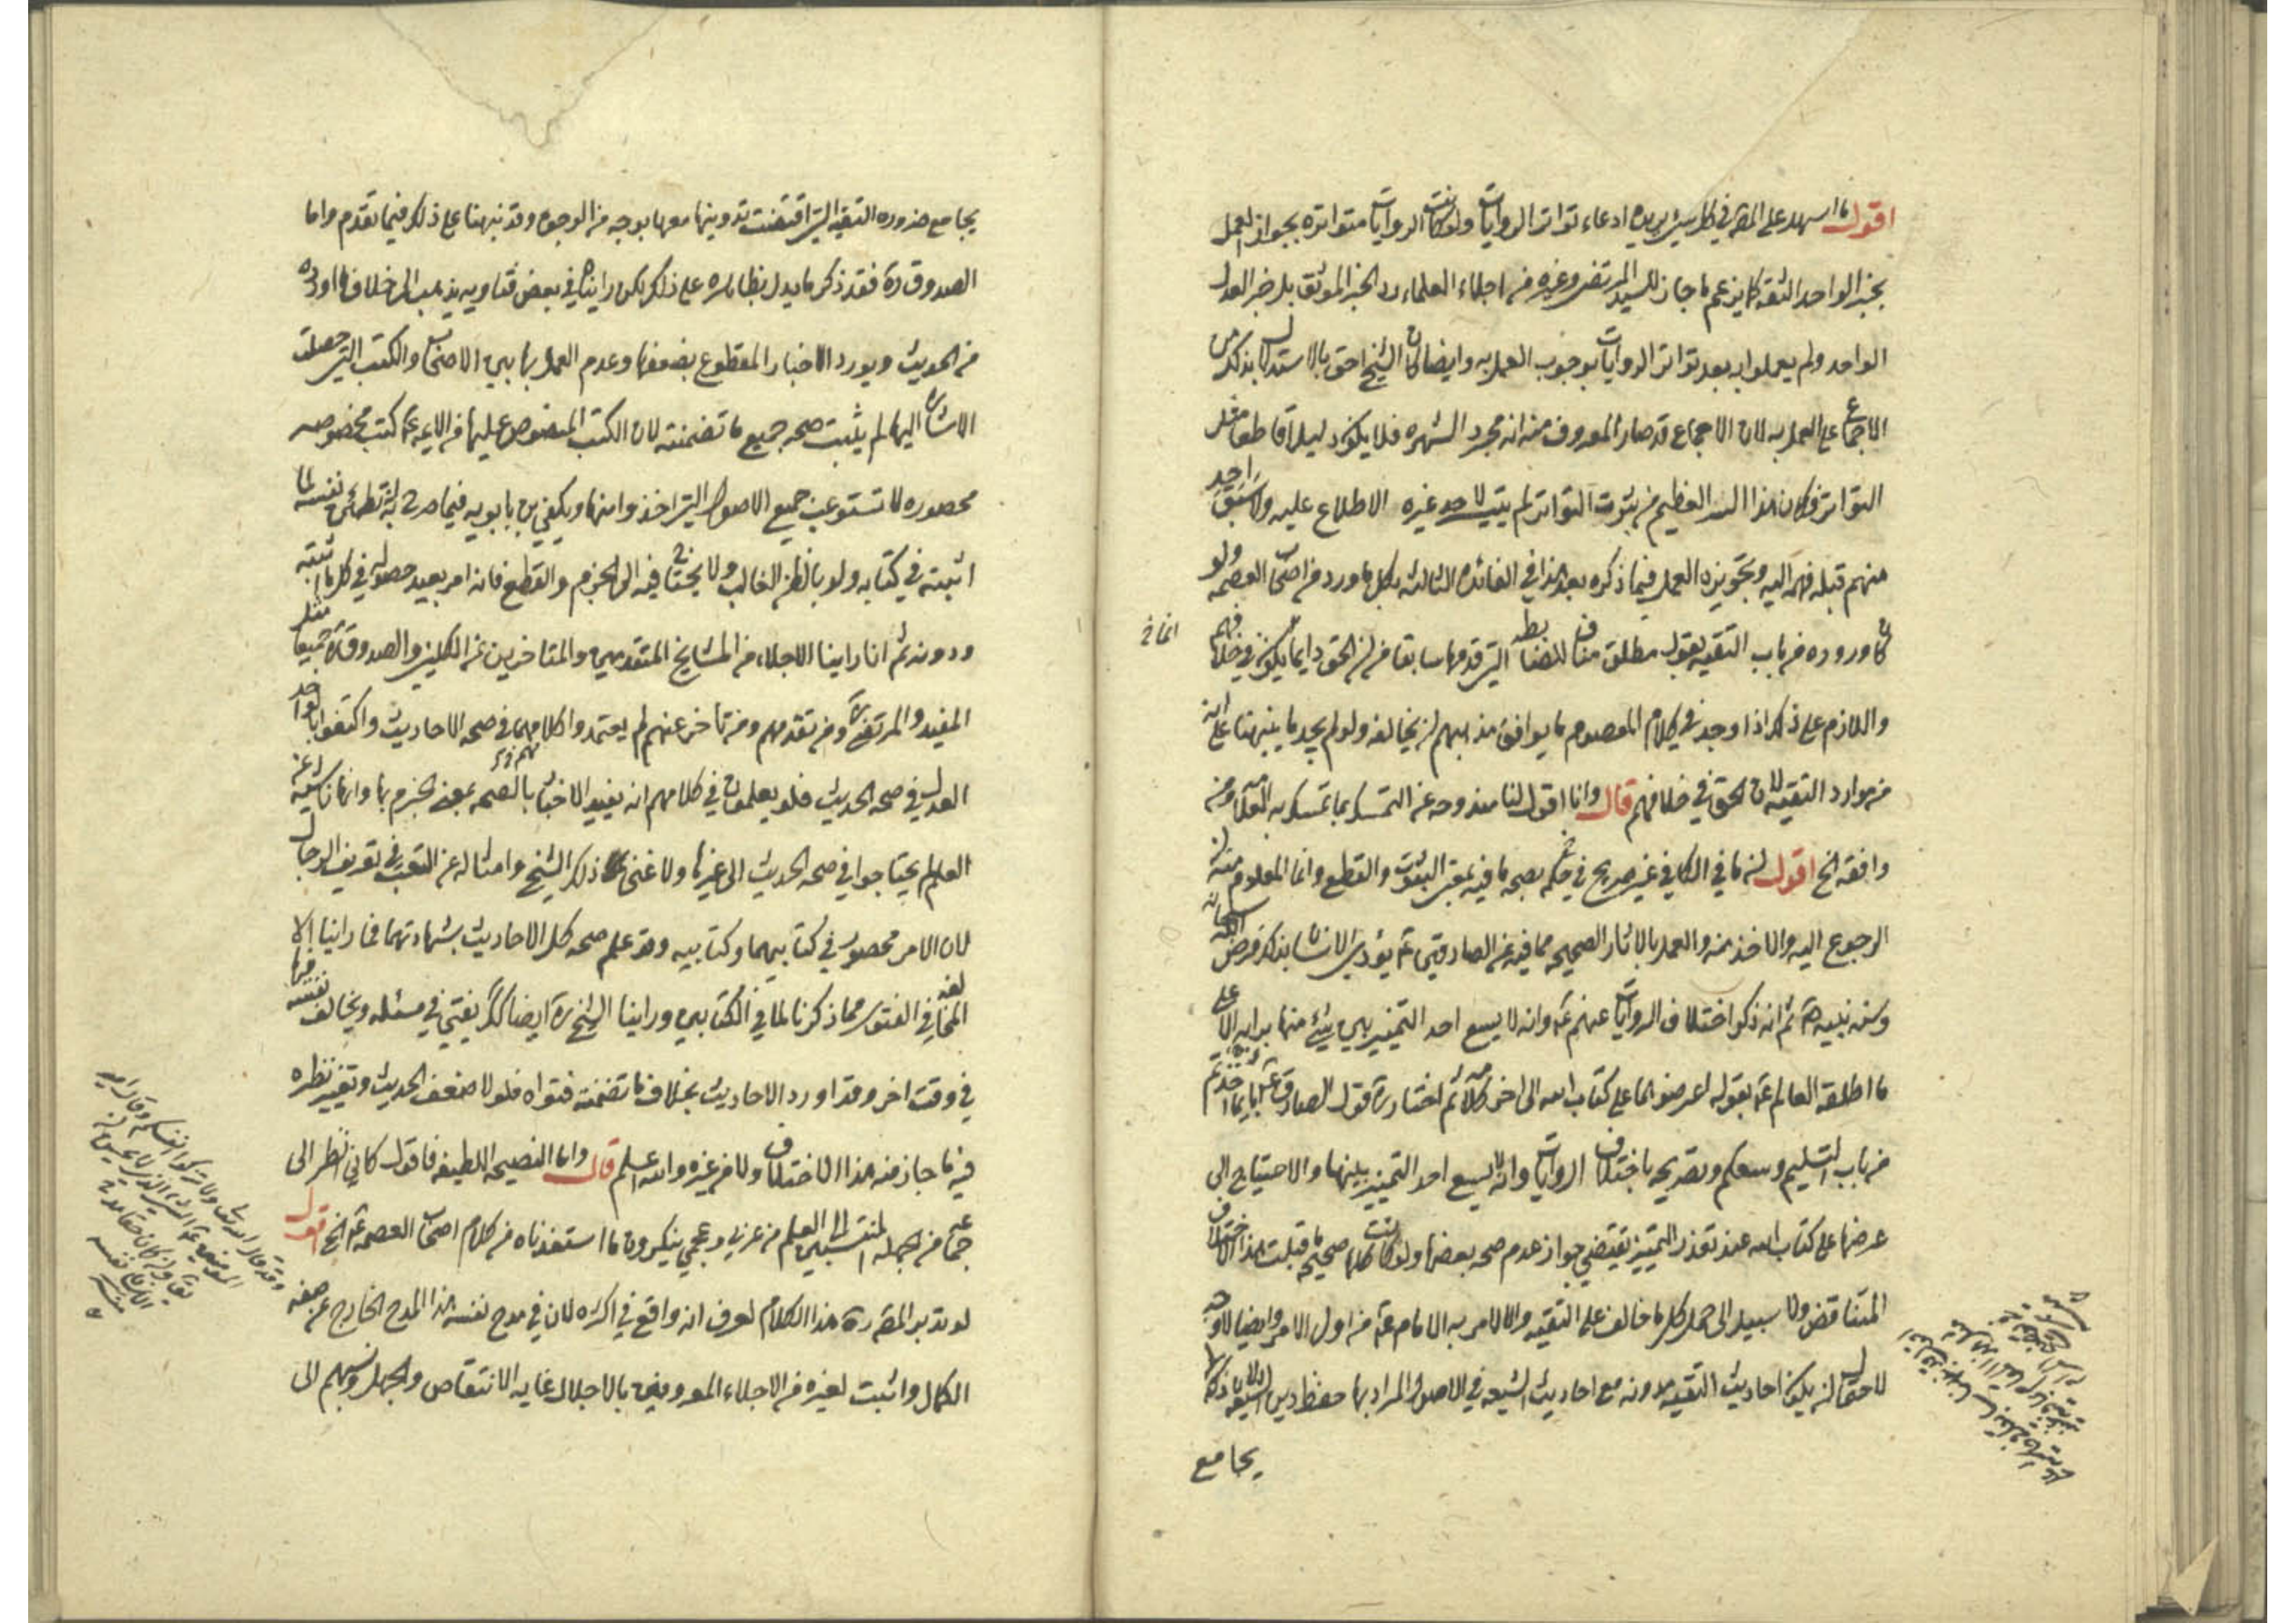 اقول ما اسهل على المصـ في كل شيء يريده ادعاء تواتر الروايات ولو كانت الروايات متواترة بجواز العمل
بخبر الواحد الثقة كما يزعم ما جاز للسيد المرتضى وغيره من اجلاء العلماء رد الخبر الموثق بل خبر العدل
الواحد ولم يعملوا به بعد تواتر الروايات بوجوب العمل به وايضا كان الشيخ احق بالاستدلال بذلك من
الاجماع على العمل به لان الاجماع قد صار المعروف منه انه مجرد الشهرة فلا يكون دليلا قاطعا مثل
التواتر فكان هذا السر العظيم من ثبوت التواتر لم يتيسر لاحد غيره الاطلاع عليه ولا سبق احد
منهم قبله فهمه اليه وتجويزه العمل فيما ذكره بعد هذا في الفائدة الثالثة بكل ما ورد من اصحاب العصمة ولو
كان وروده من باب التقية بقول مطلق مناف للضابطة التي قدمها سابقا من ان الحق دايما يكون في خلافهم
واللازم على ذلك اذا وجد في كلام المعصوم ما يوافق مذهبهم ان يخالفه ولو لم يجد ما ينبهنا على انه
من موارد التقية لان الحق في خلافهم قال وانا اقول لنا مندوحة عن التمسك بما تمسك به العلامة ومن
وافقه الخ اقول ان ما في الكافي غير صريح في حكمه بصحة ما فيه بمعنى الثبوت والقطع وانما المعلوم منه ان
الرجوع اليه والاخذ منه والعمل بالاثار الصحيحة مما فيه عن الصادقين عم يؤدي الانسان بذلك فرض الله سبحانه
وسنة نبيه ص ثم انه ذكر اختلاف الروايات عنهم عم وانه لا يسع احد التمييز بين شيء منها برايه الا على
ما اطلقه العالم عم بقوله اعرضوها على كتاب الله الى اخر كلامه ثم اختار ره قول الصادق عم بايما اخذتم
من باب التسليم وسعكم وتصريحه باختلاف الروايات وانه لا يسع احد التمييز بينها والاحتياج الى
عرضها على كتاب الله عند تعذر التمييز يقتضي جواز عدم صحة بعضها ولو كانت كلها صحيحة ما قبلت هذا الاختلاف
المتناقض ولا سبيل الى حمل كل ما خالف على التقية والا لامر به الامام عم من اول الامر وايضا لا وجه
لاحتمال ان يكون احاديث التقية مدونة مع احاديث الشيعة في الاصول المراد بها حفظ دين الشيعة لان ذلك لا
يجامع
يجامع ضرورة التقية التي اقتضت تدوينها معها بوجه من الوجوه وقد نبهنا على ذلك فيما تقدم واما
الصدوق ره فقد ذكر ما يدل بظاهره على ذلك لكن رايناه في بعض فتاويه يذهب الى خلاف ما اورده
من الحديث ويورد الاخبار المقطوع بضعفها وعدم العمل بها بين الاصحاب والكتب التي حصلت
الاشارة اليها لم يثبت صحة جميع ما تضمنته لان الكتب المنصوص عليها من الايمة عم كتب مخصوصة
محصورة لا تستوعب جميع الاصول التي اخذوا منها ويكفي بن بابويه فيما صرح به تطمئن نفسه لما
اثبته في كتابه ولو بالظن الغالب ولا يحتاج فيه الى الجزم والقطع فانه امر بعيد حصوله في كل ما اثبته
ودونه ثم انا راينا الاجلاء من المشايخ المتقدمين والمتاخرين عن الكليني والصدوق ره جميعا مثل
المفيد والمرتضى ره ومن تقدمهم ومن تاخر عنهم لم يعتمدوا كلامهما في صحة الاحاديث واكتفوا بالواحد
العدل في صحة الحديث فلو يعلمون في كلامهم انه يفيد الاخبار بالصحة بمعنى الجزم بها وانها ناشئة عن
العلم لم يحتاجوا في صحة الحديث الى غيرها ولا غنى ذلك الشيخ وامثاله عن التعب في تعريف الرجال
لان الامر محصور في كتابيهما وكتابيه وقد علم صحة كل الاحاديث بشهادتهما فما راينا الا
المخالفة في الفتوى مما ذكرنا لما في الكتابين وراينا الشيخ ره ايضا كذلك يفتي في مسئلة ويخالف نفسه فيها
في وقت اخر وقد اورد الاحاديث بخلاف ما تضمنته فتواه فلولا ضعف الحديث وتغير نظره
فيه ما جاز منه هذا الاختلاف ولا من غيره والله اعلم قال واما النصيحة اللطيفة فاقول كاني انظر الى
جماعة من الجهلة المنتسبين الى العلم من عربي وعجمي ينكرون ما استفدناه من كلام اصحاب العصمة عم الخ اقول
لو تدبر المصـ ره هذا الكلام لعرف انه واقع في اكثره لان في مدح نفسه هذا المدح الخارج عن صفة
الكمال واثبت لغيره من الاجلاء المعروفين بالاجلال غاية الانتقاص والجهل ونسبهم الى